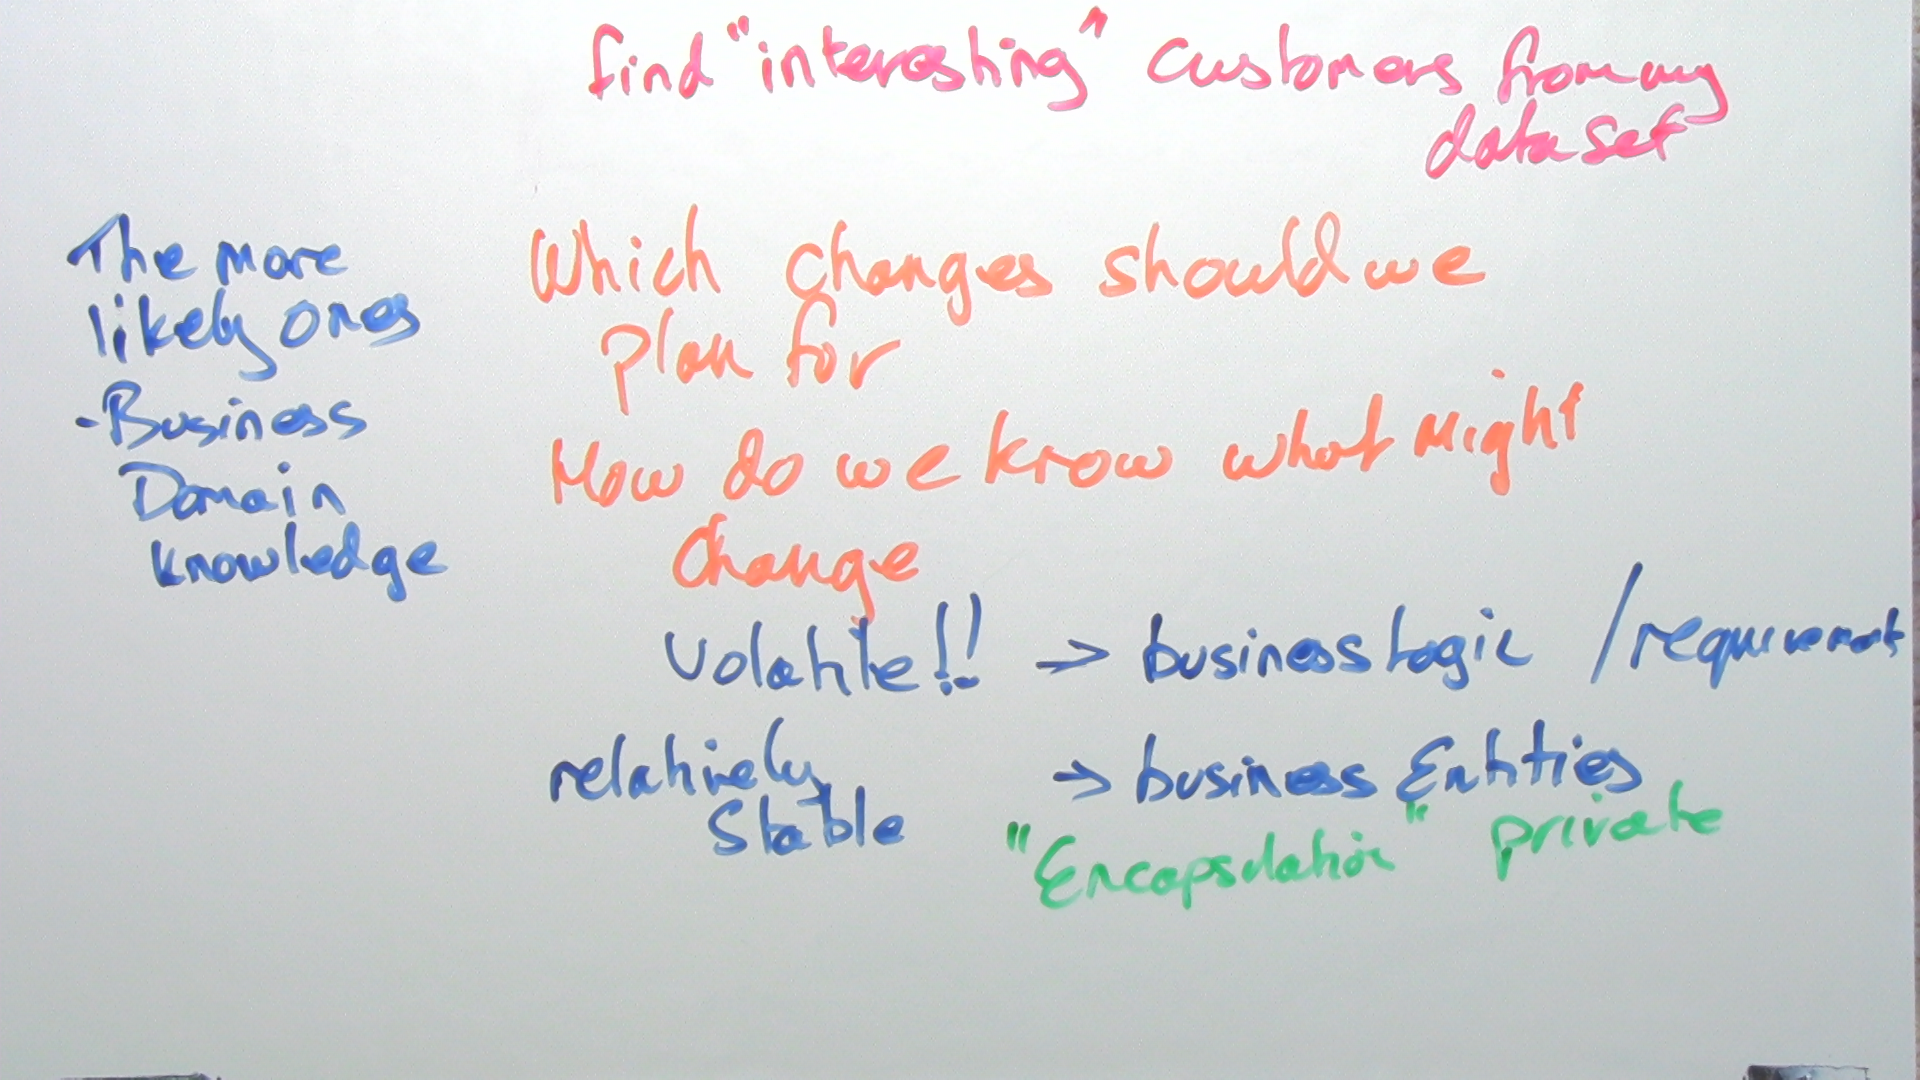 find "interesting" customers from my
dataset
The more
likely ones
- Business
Domain
knowledge
Which changes should we
plan for
How do we know what might
change
Volatile!! -> business logic / requirements
relatively
stable -> business Entities
"Encapsulation" private